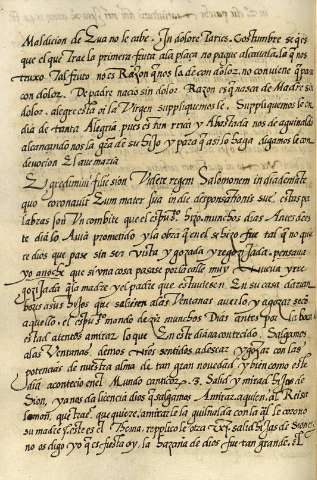 Maldicion de Eua no le cabe. In dolore Paries. Costumbre se q̃ es
que el que trae la primera fruta a la plaça no pague alcauala. la q̃ nos
truxo Tal fruto no es Razon q̃ nos la de con dolor. no conviene q̃ para
con dolor. De padre nacio sin dolor. Razon es q̃ nasca de Madre sin
dolor. alegre esta oi la Virgen suppliquemosle. Suppliquemosle en
dia de tanta Alegria pues es tan rica y Abastada nos de aguinaldo
alcançando nos la gr̃a de su hijo y para q̃ asi lo haga digamosle con
deuocion El aue maria
Egredimini filie sion Videte regem Salomonem in diademate
quo coronauit Eum mater sua in die desponsationis sue. estas pa
labras son Un combite que el espũ sto. hizo. muchos dias Antes deste
te dia lo Auia prometido y la obra q̃ en el se hizo fue tal q̃ no que
re dios que pase sin ser vista y gozada y regozijada. pensaua
yo anoche que si vna cosa pasase por la calle muy nueua y re
gozijada q̃ la madre y el padre que estuuiesen En su casa darian
bozes a sus hijos que saliesen a las Ventanas a uerlo y a gozar de
aquello. el espũ sto mando dezir muchos Dias antes por la boca
estad atentos a mirar lo que En este dia a contecido. Salgamos
a las Ventanas demos nr̃os sentidos a desear y gozar con las
potencias de nuestra alma de tan gran nouedad y bien como este
dia acontecio en el Mundo cantico. 3. Salid y mirad hijas de
Sion, ya nos da licencia dios q̃ salgamos A mirar. a quien, al Rei sa
lomon, que trae, que quiere, a mirarle la guirnalda con la q̃ le corono
su madre. este es el Thema, replicole otra vez, salid hijas de Sion,
no os digo yo q̃ es fiesta oy, la hazaña de dios fue tan grande. El